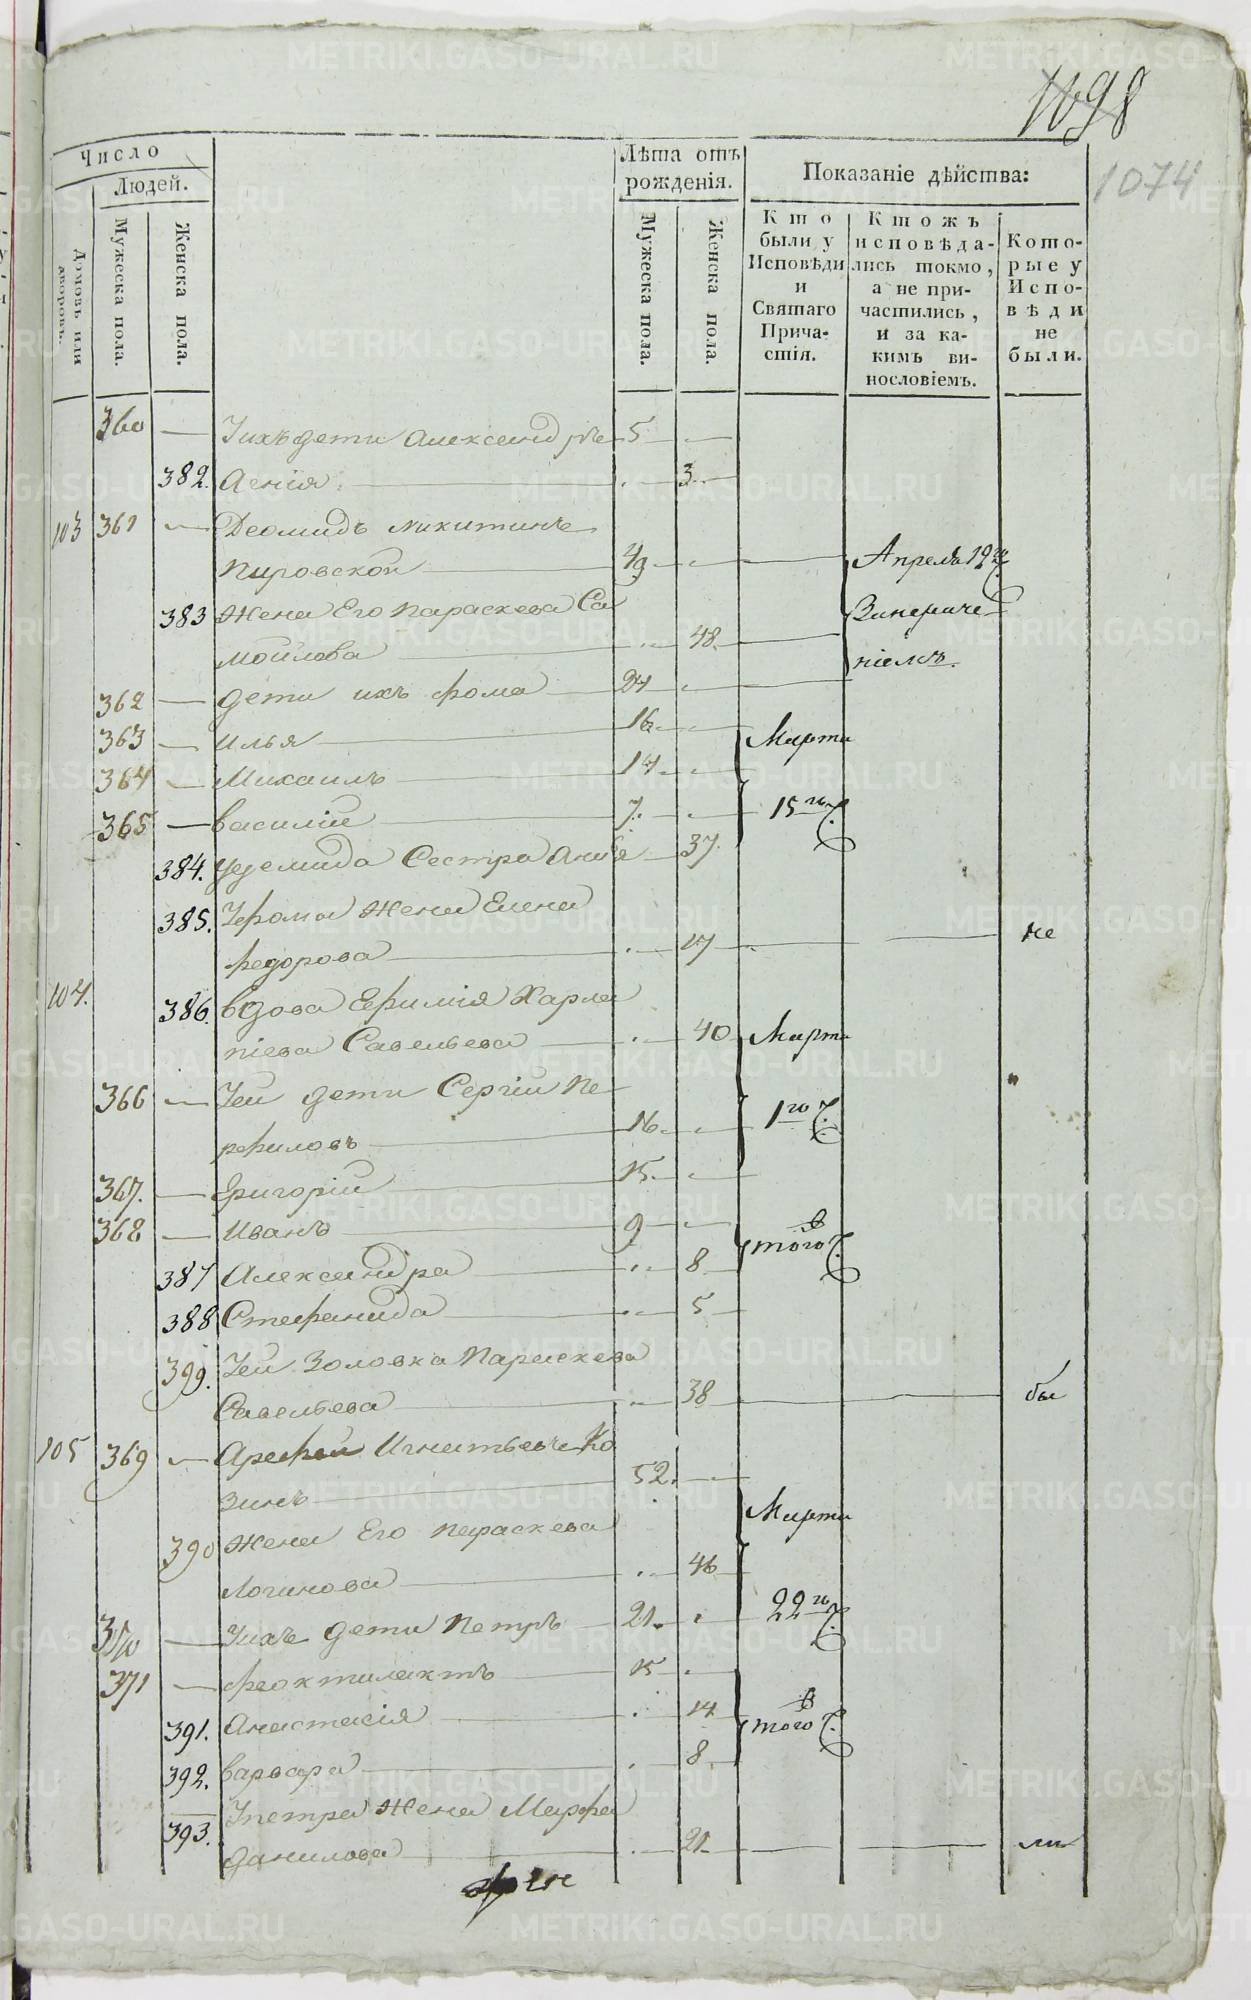 1098
1074
Число
Людей.
Домовъ или дворовъ.
Мужеска пола.
Женска пола.
Лѣта отъ рожденія.
Мужеска пола.
Женска пола.
Показаніе дѣйства:
Кто были у Исповѣди и Святаго Причастія.
Ктожъ исповѣдались токмо, а не причастились, и за какимъ винословіемъ.
Которые у Исповѣди не были.
360 — Уихъ дети Александръ 5
382. Аснія 3
103 361 — Деомидъ Никитинъ
Пировской 49 Апреля 19го
383 Жена Его Параскева Са
мойлова 48. Винераче
ніемъ.
362 — дети ихъ Фома 24
363 — Илья 16
364 — Михаилъ 14 Марта
365 — Василій 7. 15го
384. Удемида Сестра Анна 37
385. Уфома Жена Елена
Федорова 17 не
104. 386. Вдова Ефимія Харла
піева Савельева 40 Марта
366 — Уеи дети Сергій Пе
рфиловъ 16 1го
367. — Григорій 15.
368 — Иванъ 9 В
387 Александра 8 того
388 Стефанида 5
399. Уеи Золовка Параскева
Савельева 38 бы
105 369 — Арефей Игнатьевъ Ко
зинъ 52. Марта
390 Жена Его Параскева
Логинова 46
370 — Уихъ дети Петръ 21. 22го
371 — Феоктилактъ 15
391. Анастасія 14 В того
392. Варвара 8
393. Упетра Жена Марфа
Данилова 21 ли
METRIKI.GASO-URAL.RU